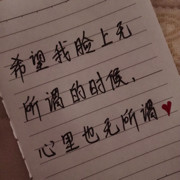 希望我脸上无
所谓的时候，
心里也无所谓